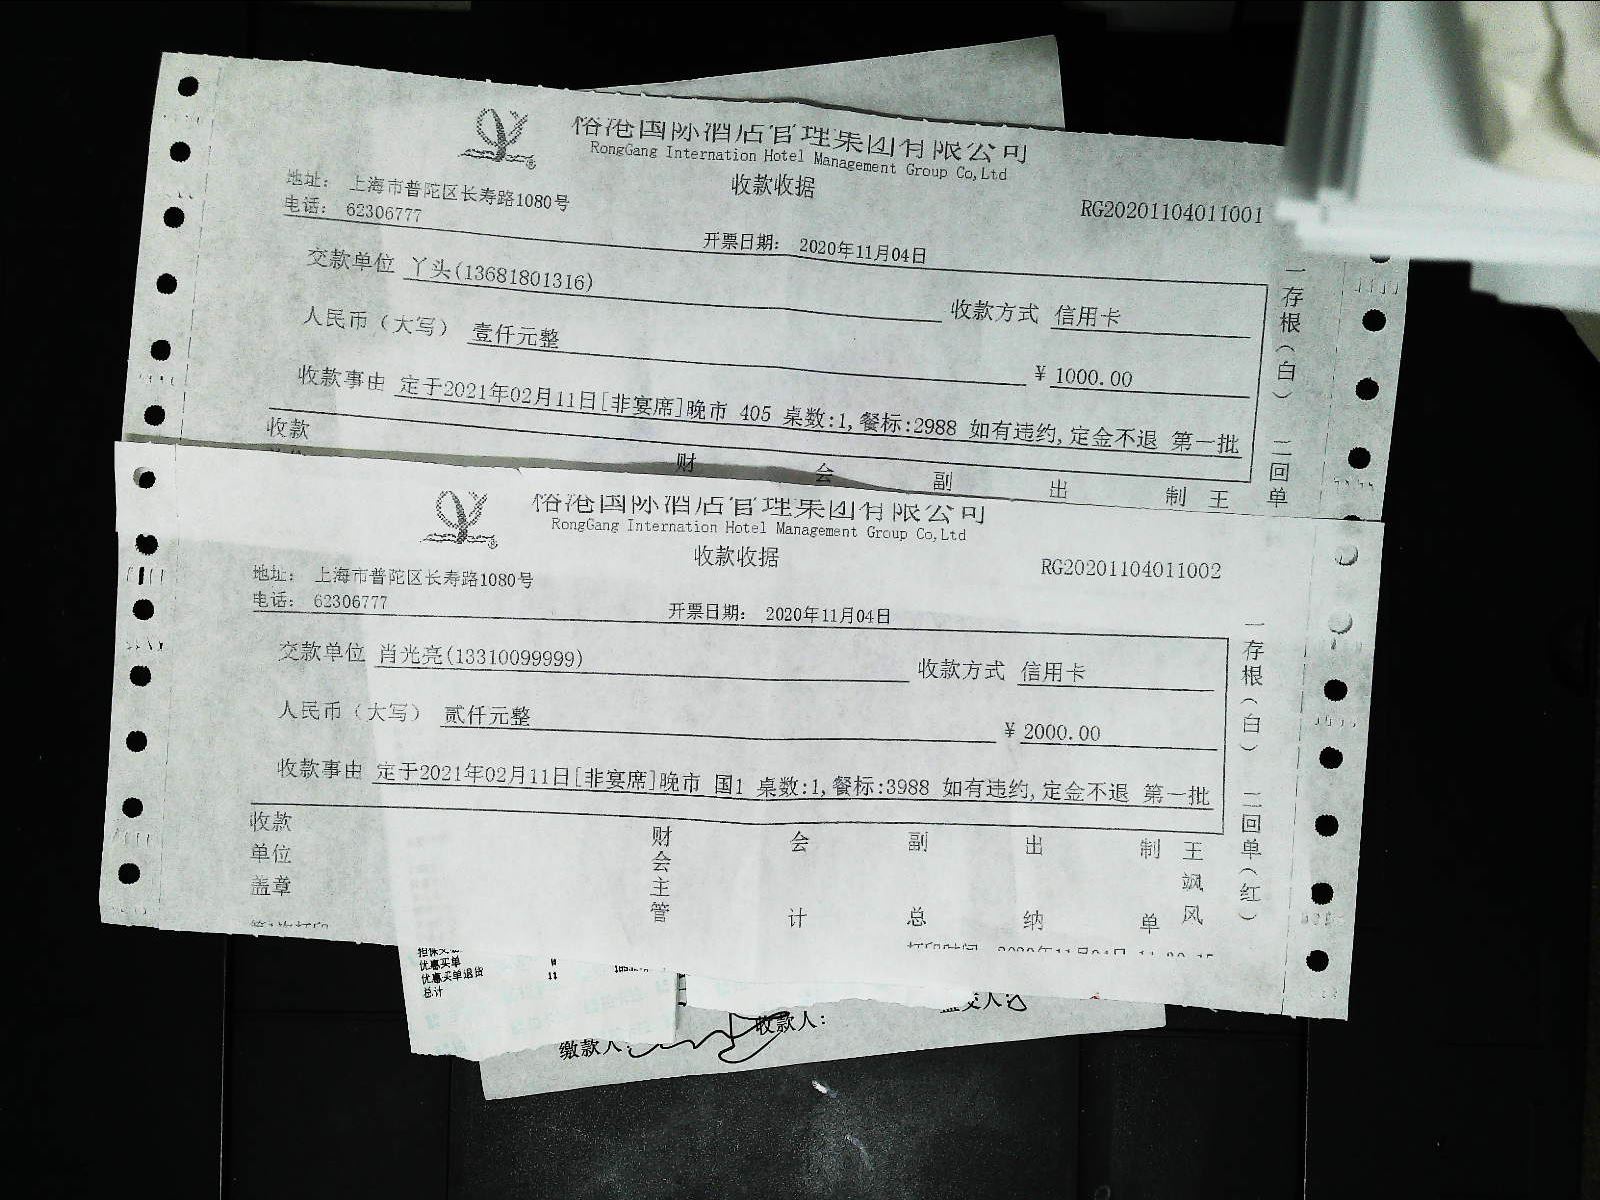 裕港国际酒店管理集团有限公司
RongGang Internation Hotel Management Group Co,Ltd
收款收据
地址： 上海市普陀区长寿路1080号
电话： 62306777
RG20201104011001
开票日期： 2020年11月04日
交款单位 丫头(13681801316) 收款方式 信用卡
人民币（大写） 壹仟元整 ¥ 1000.00
收款事由 定于2021年02月11日[非宴席]晚市 405 桌数:1,餐标:2988 如有违约,定金不退 第一批
一存根（白） 二回单
收款 财 会 副 出 制 王
裕港国际酒店管理集团有限公司
RongGang Internation Hotel Management Group Co,Ltd
收款收据
RG20201104011002
地址： 上海市普陀区长寿路1080号
电话： 62306777
开票日期： 2020年11月04日
交款单位 肖光亮(13310099999) 收款方式 信用卡
人民币（大写） 贰仟元整 ¥ 2000.00
收款事由 定于2021年02月11日[非宴席]晚市 国1 桌数:1,餐标:3988 如有违约,定金不退 第一批
一存根（白） 二回单（红）
收款单位盖章 财会主管 会计 副总 出纳 制单 王飒风
优惠买单
优惠买单退货
总计
缴款人： 收款人：